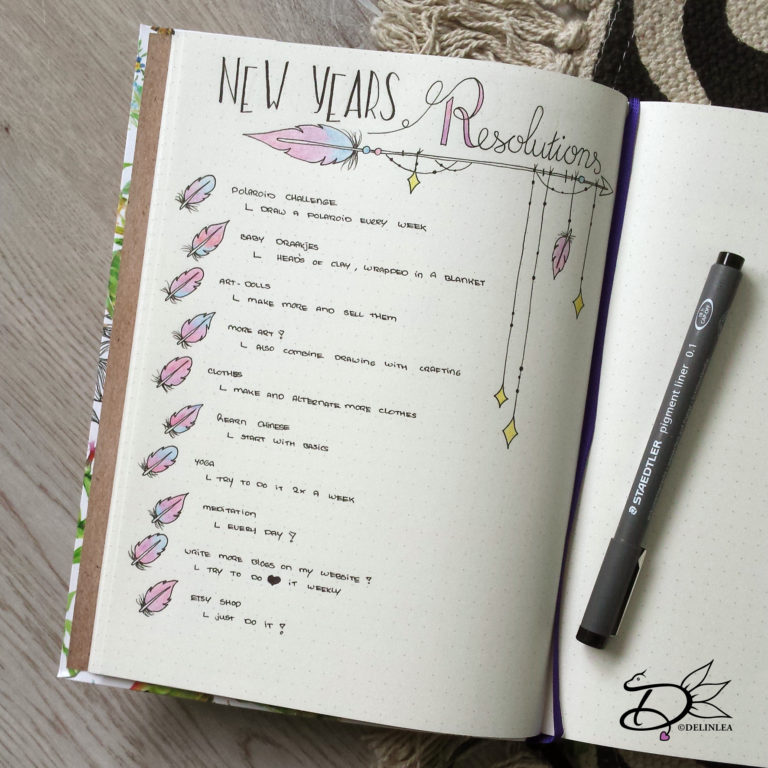 NEW YEARS Resolutions
POLAROID CHALLENGE
L DRAW A POLAROID EVERY WEEK
BABY DRAAKJES
L HEAD'S OF CLAY, WRAPPED IN A BLANKET
ART-DOLLS
L MAKE MORE AND SELL THEM
MORE ART!
L ALSO COMBINE DRAWING WITH CRAFTING
CLOTHES
L MAKE AND ALTERNATE MORE CLOTHES
LEARN CHINESE
L START WITH BASICS
YOGA
L TRY TO DO IT 2X A WEEK
MEDITATION
L EVERY DAY!
WRITE MORE BLOGS ON MY WEBSITE!
L TRY TO DO ♥ IT WEEKLY
ETSY SHOP
L JUST DO IT!
STAEDTLER pigment liner 0.1
D
©DELINLEA